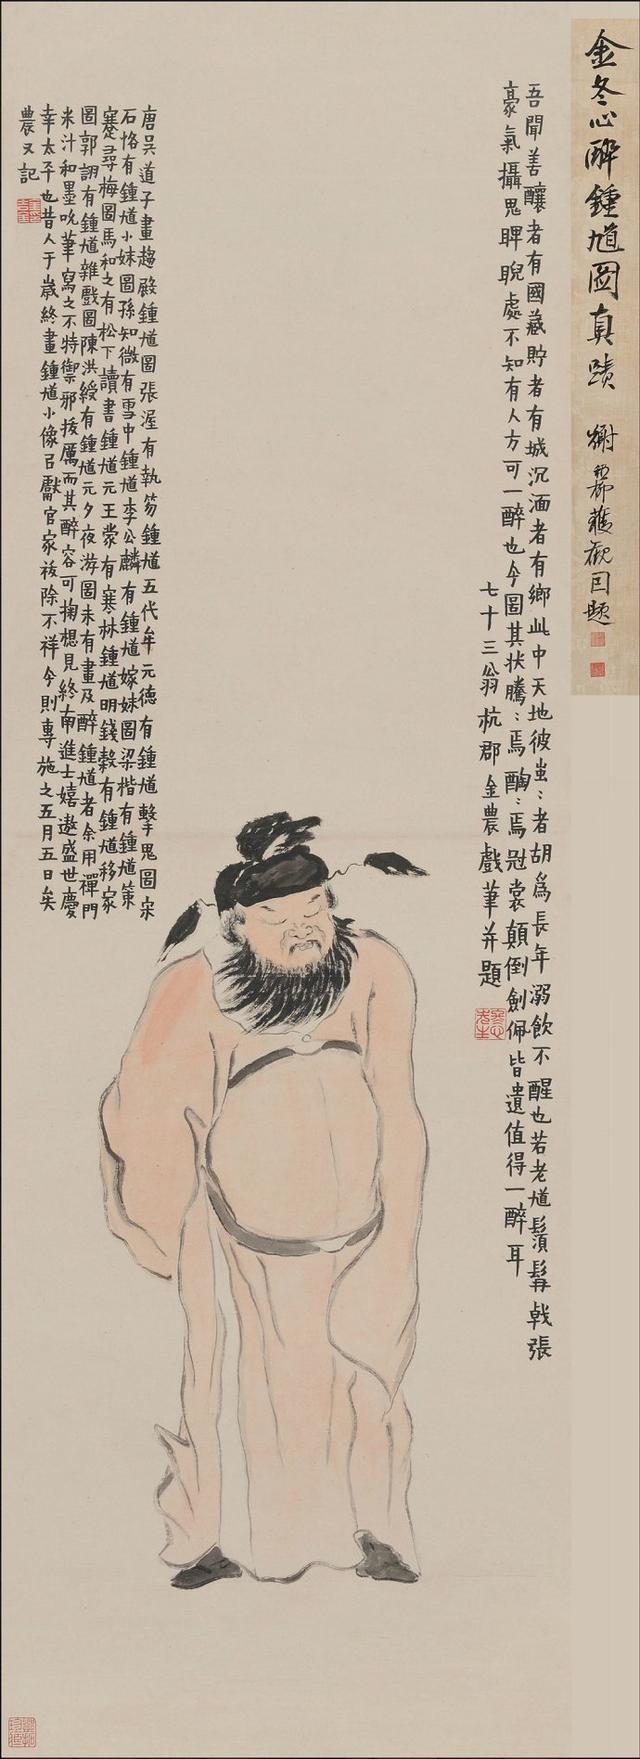 金冬心醉鍾馗圖真蹟 謝 獲觀因題
吾聞善釀者有國藏貯者有城沉湎者有鄉此中天地彼蚩：者胡為長年溺飲不醒也若老馗鬚髯戟張
豪氣攝鬼睥睨處不知有人方可一醉也今圖其狀騰：焉醄：焉冠裳顛倒劍佩皆遺值得一醉耳
七十三翁杭郡金農戲筆并題
唐吳道子畫趨殿鍾馗圖張渥有執笏鍾馗五代牟元德有鍾馗擊鬼圖宋
石恪有鍾馗小妹圖孫知微有雪中鍾馗李公麟有鍾馗嫁妹圖梁楷有鍾馗策
蹇尋梅圖馬和之有松下讀書鍾馗元王蒙有寒林鍾馗明錢穀有鍾馗移家
圖郭詡有鍾馗雜戲圖陳洪綬有鍾馗元夕夜游圖未有畫及醉鍾馗者余用禪門
米汁和墨吮筆寫之不特禦邪拔厲而其醉容可掬想見終南進士嬉遨盛世慶
幸太平也昔人于歲終畫鍾馗小像㠯獻官家祓除不祥今則專施之五月五日矣
農又記